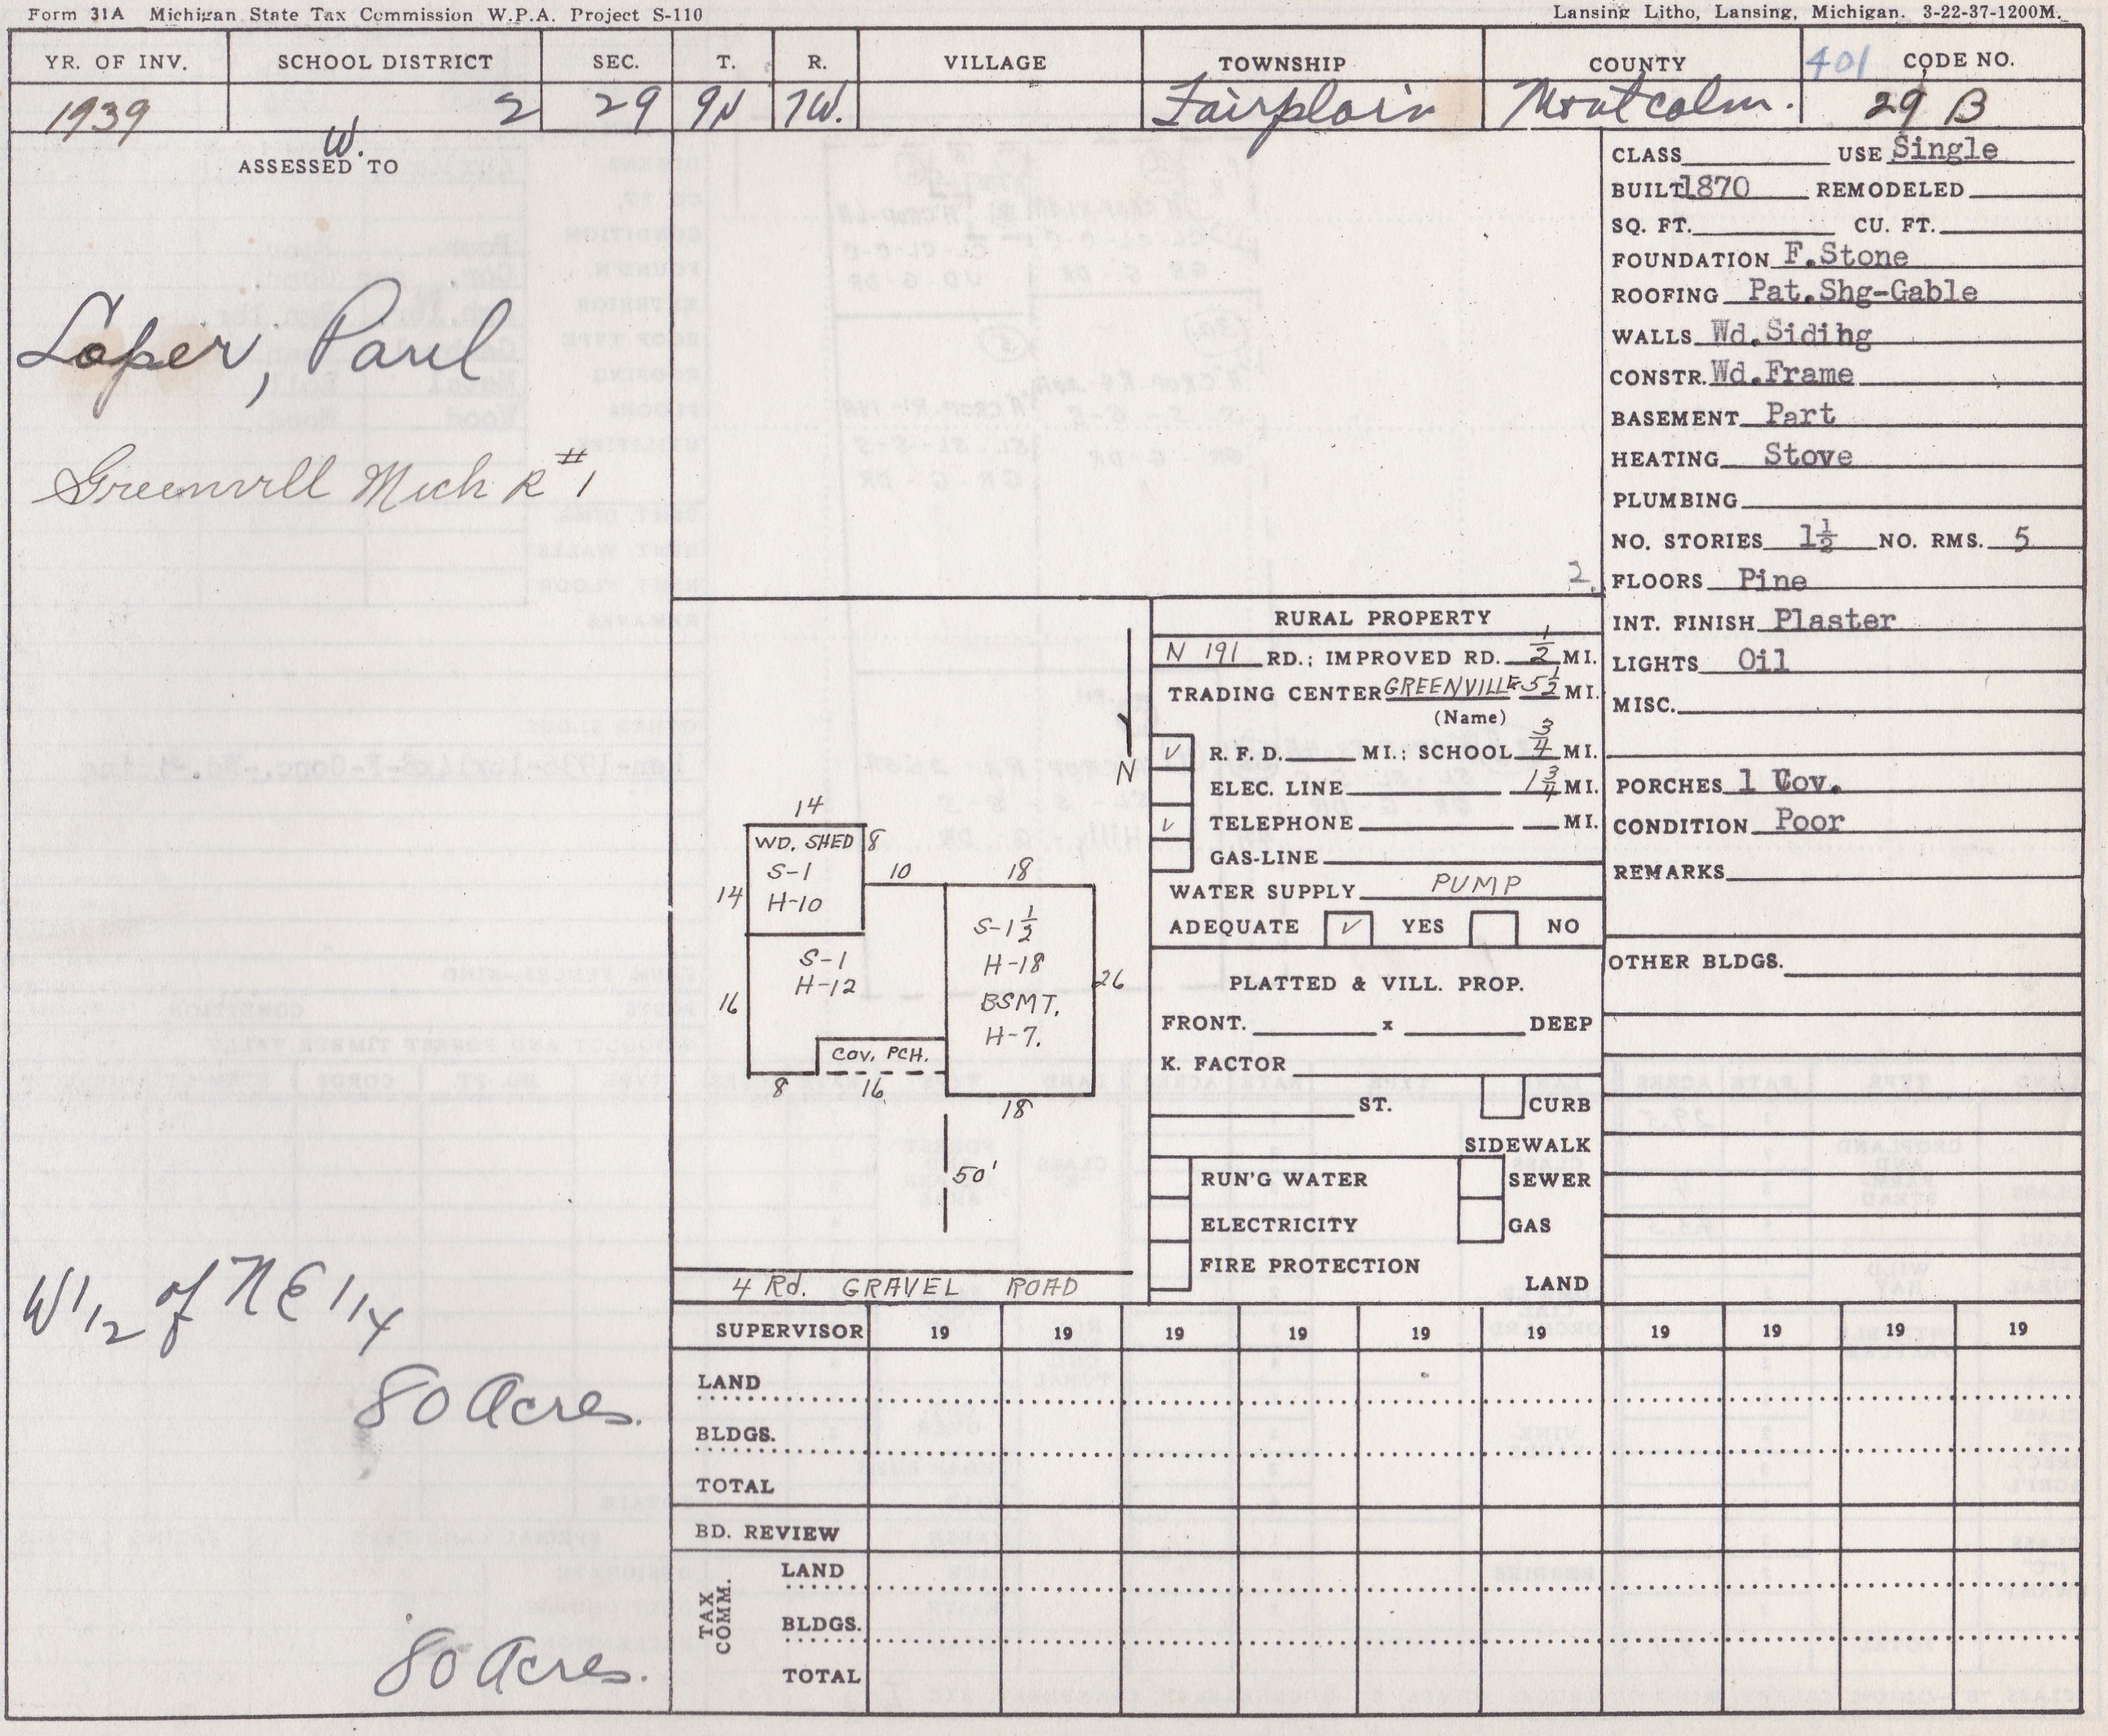 Form 31A Michigan State Tax Commission W.P.A. Project S-110
Lansing Litho, Lansing, Michigan. 3-22-37-1200M.
YR. OF INV. SCHOOL DISTRICT SEC. T. R. VILLAGE TOWNSHIP COUNTY 401 CODE NO.
1939 2 29 9N 7W. Fairplain Montcalm. 29 B
W.
ASSESSED TO
Loper, Paul
Greenvill Mich R #1
W 1/2 of NE 1/4
80 Acres.
80 Acres.
CLASS USE Single
BUILT 1870 REMODELED
SQ. FT. CU. FT.
FOUNDATION F.Stone
ROOFING Pat.Shg-Gable
WALLS Wd.Siding
CONSTR. Wd.Frame
BASEMENT Part
HEATING Stove
PLUMBING
NO. STORIES 1½ NO. RMS. 5
2. FLOORS Pine
INT. FINISH Plaster
LIGHTS Oil
MISC.
PORCHES 1 Cov.
CONDITION Poor
REMARKS
OTHER BLDGS.
RURAL PROPERTY
N 191 RD.; IMPROVED RD. ½ MI.
TRADING CENTER GREENVILLE 5½ MI.
(Name)
√ R.F.D. MI.; SCHOOL ¾ MI.
ELEC. LINE 1¾ MI.
√ TELEPHONE MI.
GAS-LINE
WATER SUPPLY PUMP
ADEQUATE √ YES NO
PLATTED & VILL. PROP.
FRONT. x DEEP
K. FACTOR
ST. CURB
SIDEWALK
RUN'G WATER SEWER
ELECTRICITY GAS
FIRE PROTECTION
LAND
N
14
WD. SHED 8
S-1 10 18
14 H-10
S-1½
S-1 H-18
H-12 26
16 BSMT.
H-7.
COV. PCH.
8 16
18
50'
4 Rd. GRAVEL ROAD
SUPERVISOR 19 19 19 19 19 19 19 19 19 19
LAND
BLDGS.
TOTAL
BD. REVIEW
TAX COMM.
LAND
BLDGS.
TOTAL